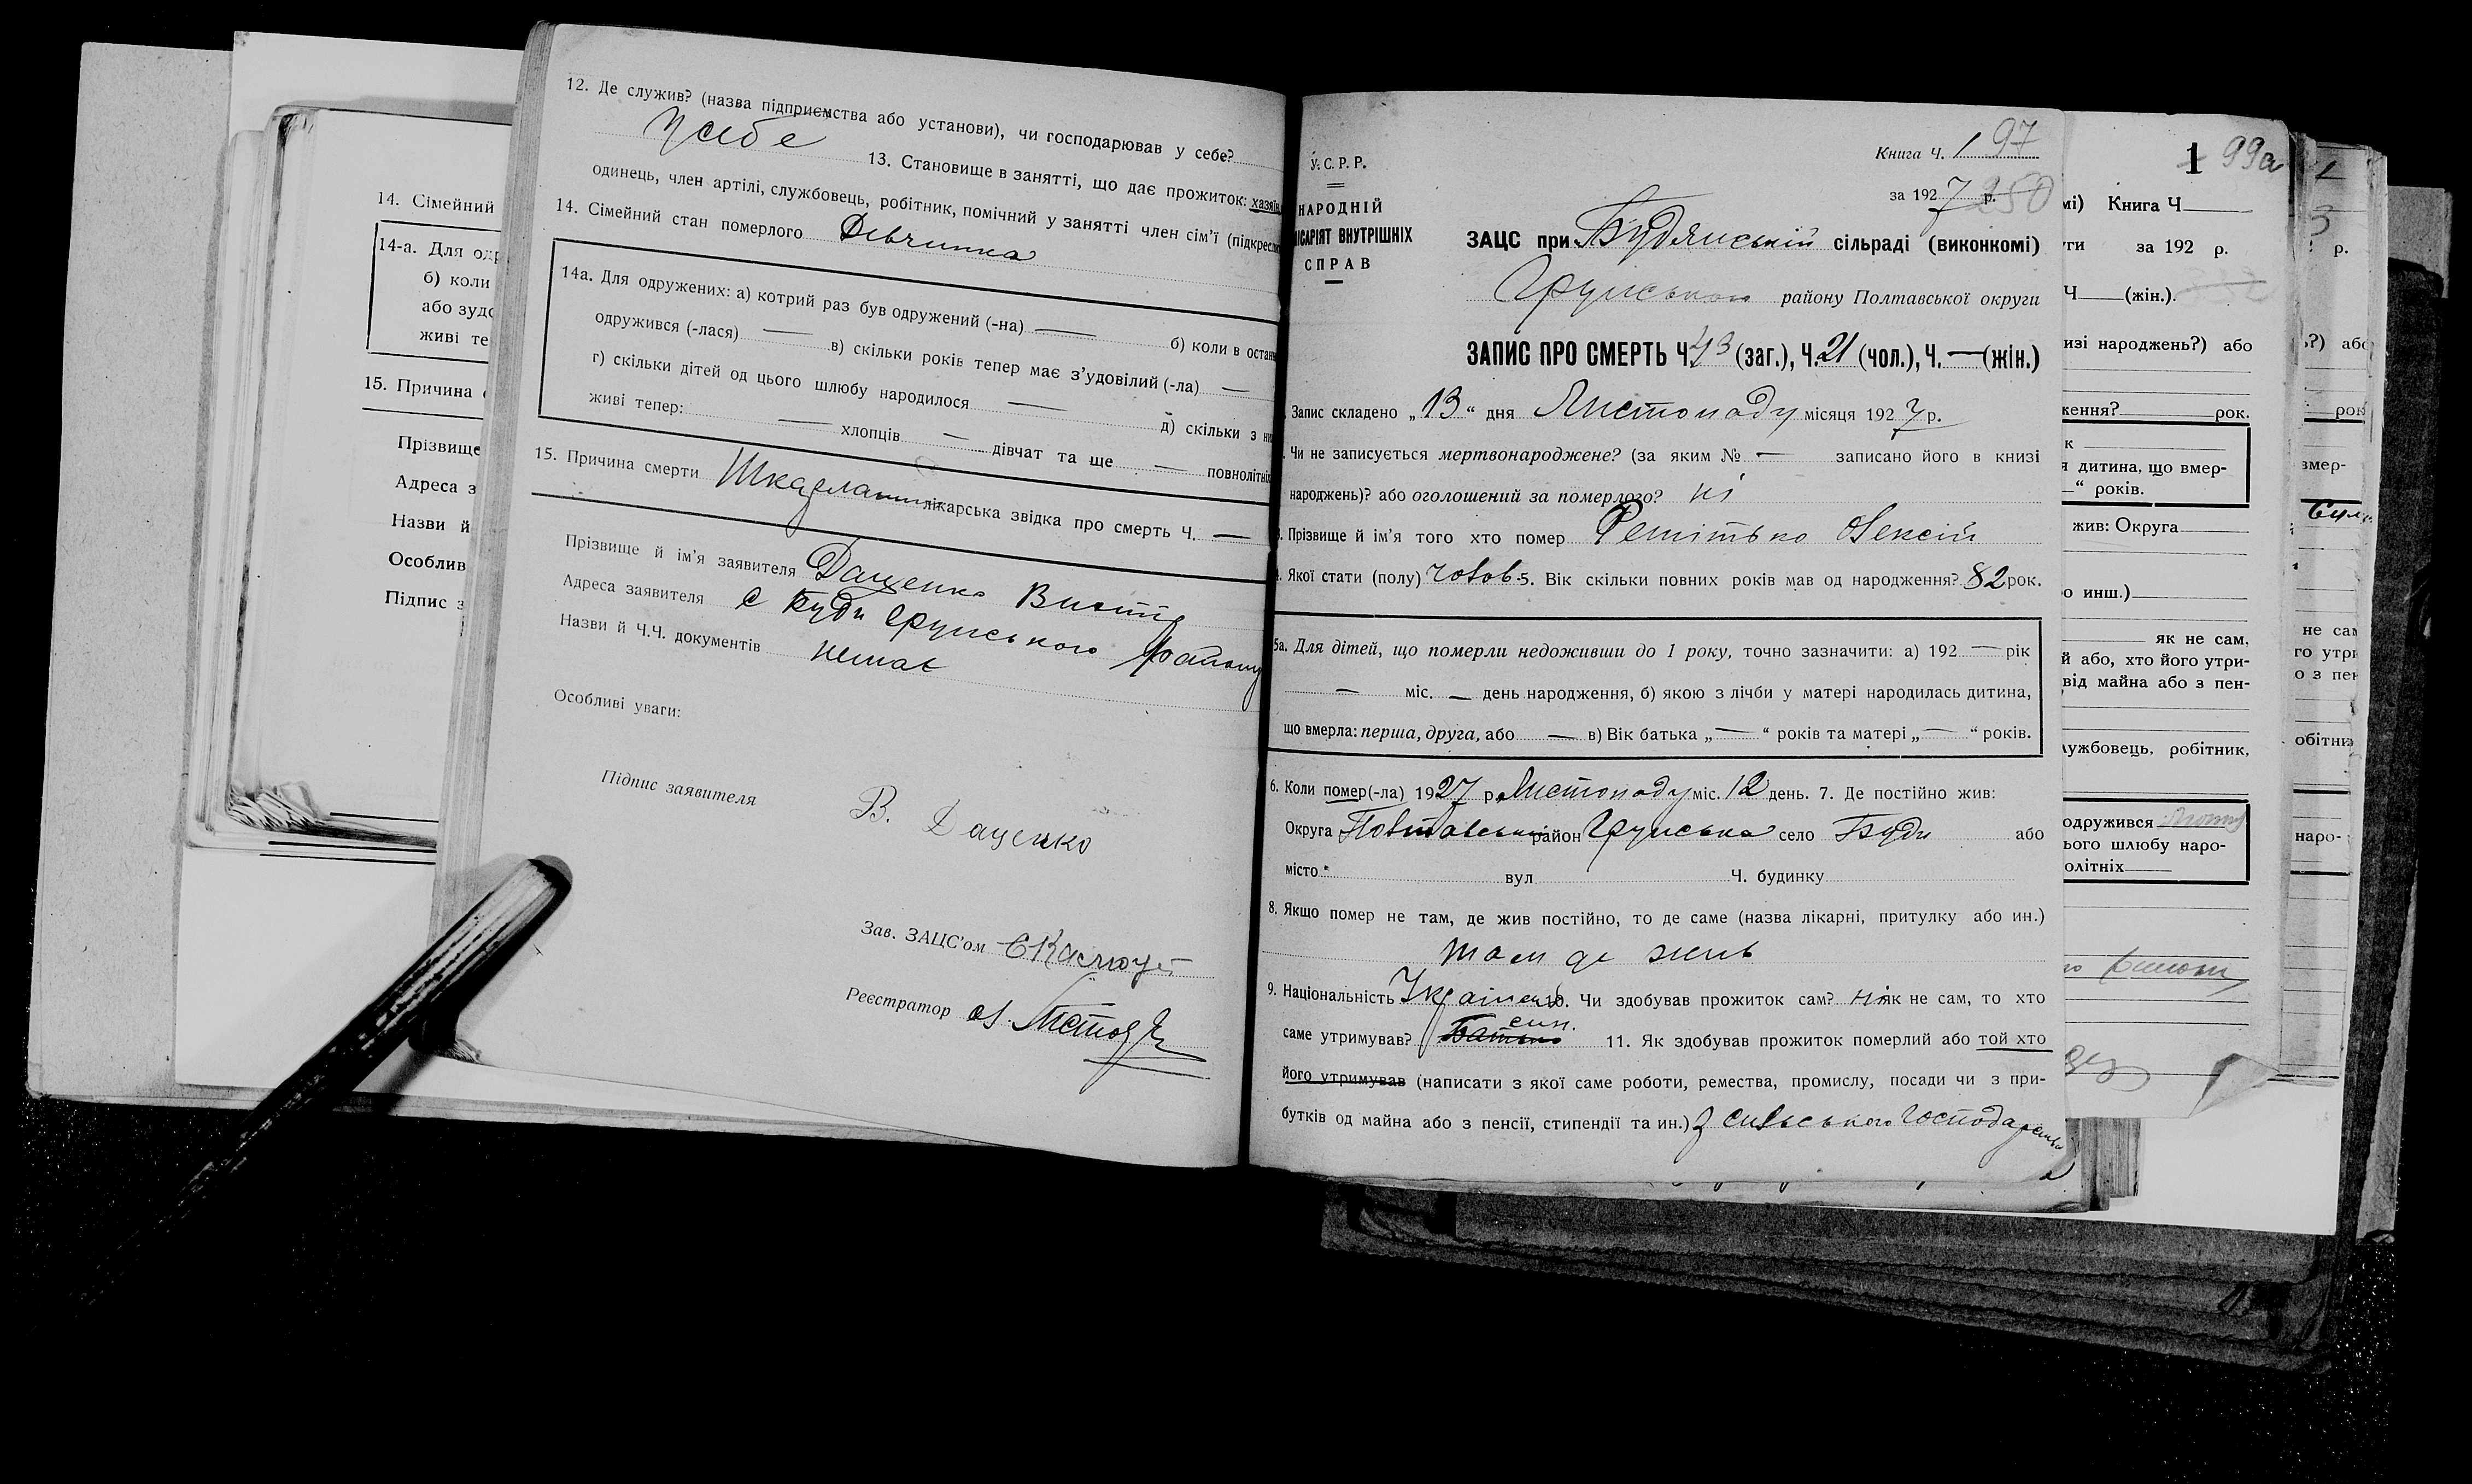 12. Де служив? (назва підприємства або установи), чи господарював у себе?
У себе 13. Становище в занятті, що дає прожиток: хазяїн,
одинець, член артілі, службовець, робітник, помічний у занятті член сім'ї (підкресли
14. Сімейний стан померлого Дівчинка
14а. Для одружених: а) котрий раз був одружений (-на) — б) коли в остан
одружився (-лася) — в) скільки років тепер має з'удовілий (-ла) —
г) скільки дітей од цього шлюбу народилося — д) скільки з ни
живі тепер: — хлопців — дівчат та ще — повнолітніх
15. Причина смерти Шкарлатина лікарська звідка про смерть Ч. —
Прізвище й ім'я заявителя Даценко
Адреса заявителя С Буди Грунського Району
Назви й Ч.Ч. документів немає
Особливі уваги:
Підпис заявителя В. Даценко
Зав. ЗАЦС'ом
Реєстратор
14. Сімейний
14-а. Для одр
б) коли
або зудо
живі те
15. Причина с
Прізвище
Адреса з
Назви й
Особлив
Підпис з
У. С. Р. Р.
НАРОДНІЙ
КОМІСАРІЯТ ВНУТРІШНІХ
СПРАВ
Книга Ч. 1 97
за 1927 р. 250
ЗАЦС при Будянській сільраді (виконкомі)
Грунського району Полтавської округи
ЗАПИС ПРО СМЕРТЬ Ч. 43 (заг.), Ч. 21 (чол.), Ч. — (жін.)
Запис складено „13“ дня Листопаду місяця 1927 р.
Чи не записується мертвонароджене? (за яким № — записано його в книзі
народжень)? або оголошений за померлого? ні
3. Прізвище й ім'я того хто помер Репітько Олексій
4. Якої стати (полу) чолов. 5. Вік скільки повних років мав од народження? 82 рок.
5а. Для дітей, що померли недоживши до 1 року, точно зазначити: а) 192 — рік
— міс. — день народження, б) якою з лічби у матері народилась дитина,
що вмерла: перша, друга, або — в) Вік батька „—“ років та матері „—“ років.
6. Коли помер(-ла) 1927 р. Листопаду міс. 12 день. 7. Де постійно жив:
Округа Полтавський район Грунська село Буди або
місто вул Ч. будинку
8. Якщо помер не там, де жив постійно, то де саме (назва лікарні, притулку або ин.)
там де жив
9. Національність Українец 10. Чи здобував прожиток сам? ні як не сам, то хто
саме утримував? Батько син. 11. Як здобував прожиток померлий або той хто
його утримував (написати з якої саме роботи, ремества, промислу, посади чи з при-
бутків од майна або з пенсії, стипендії та ин.) З сильського господарства
1 99а
мі) Книга Ч
уги за 192 р.
Ч (жін.).
изі народжень?) або
ження? рок.
к
я дитина, що вмер-
“ років.
жив: Округа
о инш.)
як не сам,
й або, хто його утри-
від майна або з пен-
лужбовець, робітник,
одружився
ього шлюбу наро-
олітніх